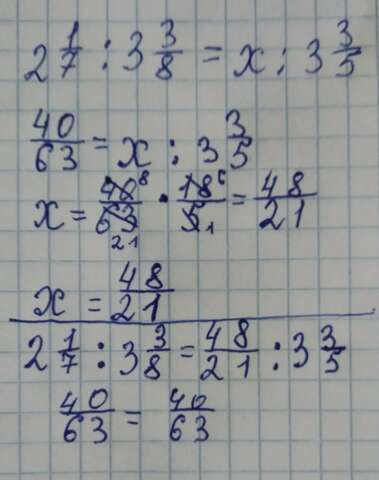 2 1/7 : 3 3/8 = x : 3 3/5
40/63 = x : 3 3/5
x = 40 8/63 21 · 18 6/5 1 = 48/21
x = 48/21
2 1/7 : 3 3/8 = 48/21 : 3 3/5
40/63 = 40/63